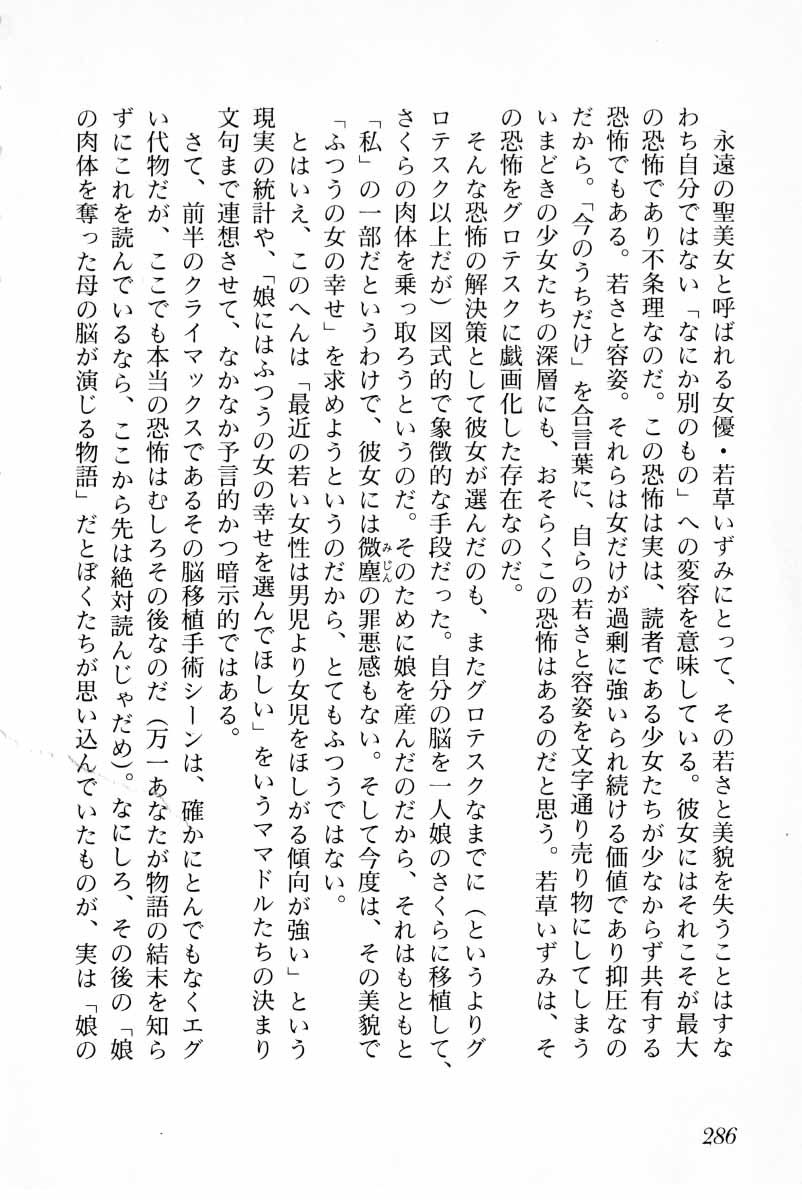 永遠の聖美女と呼ばれる女優・若草いずみにとって、その若さと美貌を失うことはすな
わち自分ではない「なにか別のもの」への変容を意味している。彼女にはそれこそが最大
の恐怖であり不条理なのだ。この恐怖は実は、読者である少女たちが少なからず共有する
恐怖でもある。若さと容姿。それらは女だけが過剰に強いられ続ける価値であり抑圧なの
だから。「今のうちだけ」を合言葉に、自らの若さと容姿を文字通り売り物にしてしまう
いまどきの少女たちの深層にも、おそらくこの恐怖はあるのだと思う。若草いずみは、そ
の恐怖をグロテスクに戯画化した存在なのだ。
　そんな恐怖の解決策として彼女が選んだのも、またグロテスクなまでに（というよりグ
ロテスク以上だが）図式的で象徴的な手段だった。自分の脳を一人娘のさくらに移植して、
さくらの肉体を乗っ取ろうというのだ。そのために娘を産んだのだから、それはもともと
「私」の一部だというわけで、彼女には微塵みじんの罪悪感もない。そして今度は、その美貌で
「ふつうの女の幸せ」を求めようというのだから、とてもふつうではない。
　とはいえ、このへんは「最近の若い女性は男児より女児をほしがる傾向が強い」という
現実の統計や、「娘にはふつうの女の幸せを選んでほしい」をいうママドルたちの決まり
文句まで連想させて、なかなか予言的かつ暗示的ではある。
　さて、前半のクライマックスであるその脳移植手術シーンは、確かにとんでもなくエグ
い代物だが、ここでも本当の恐怖はむしろその後なのだ（万一あなたが物語の結末を知ら
ずにこれを読んでいるなら、ここから先は絶対読んじゃだめ）。なにしろ、その後の「娘
の肉体を奪った母の脳が演じる物語」だとぼくたちが思い込んでいたものが、実は「娘の
286